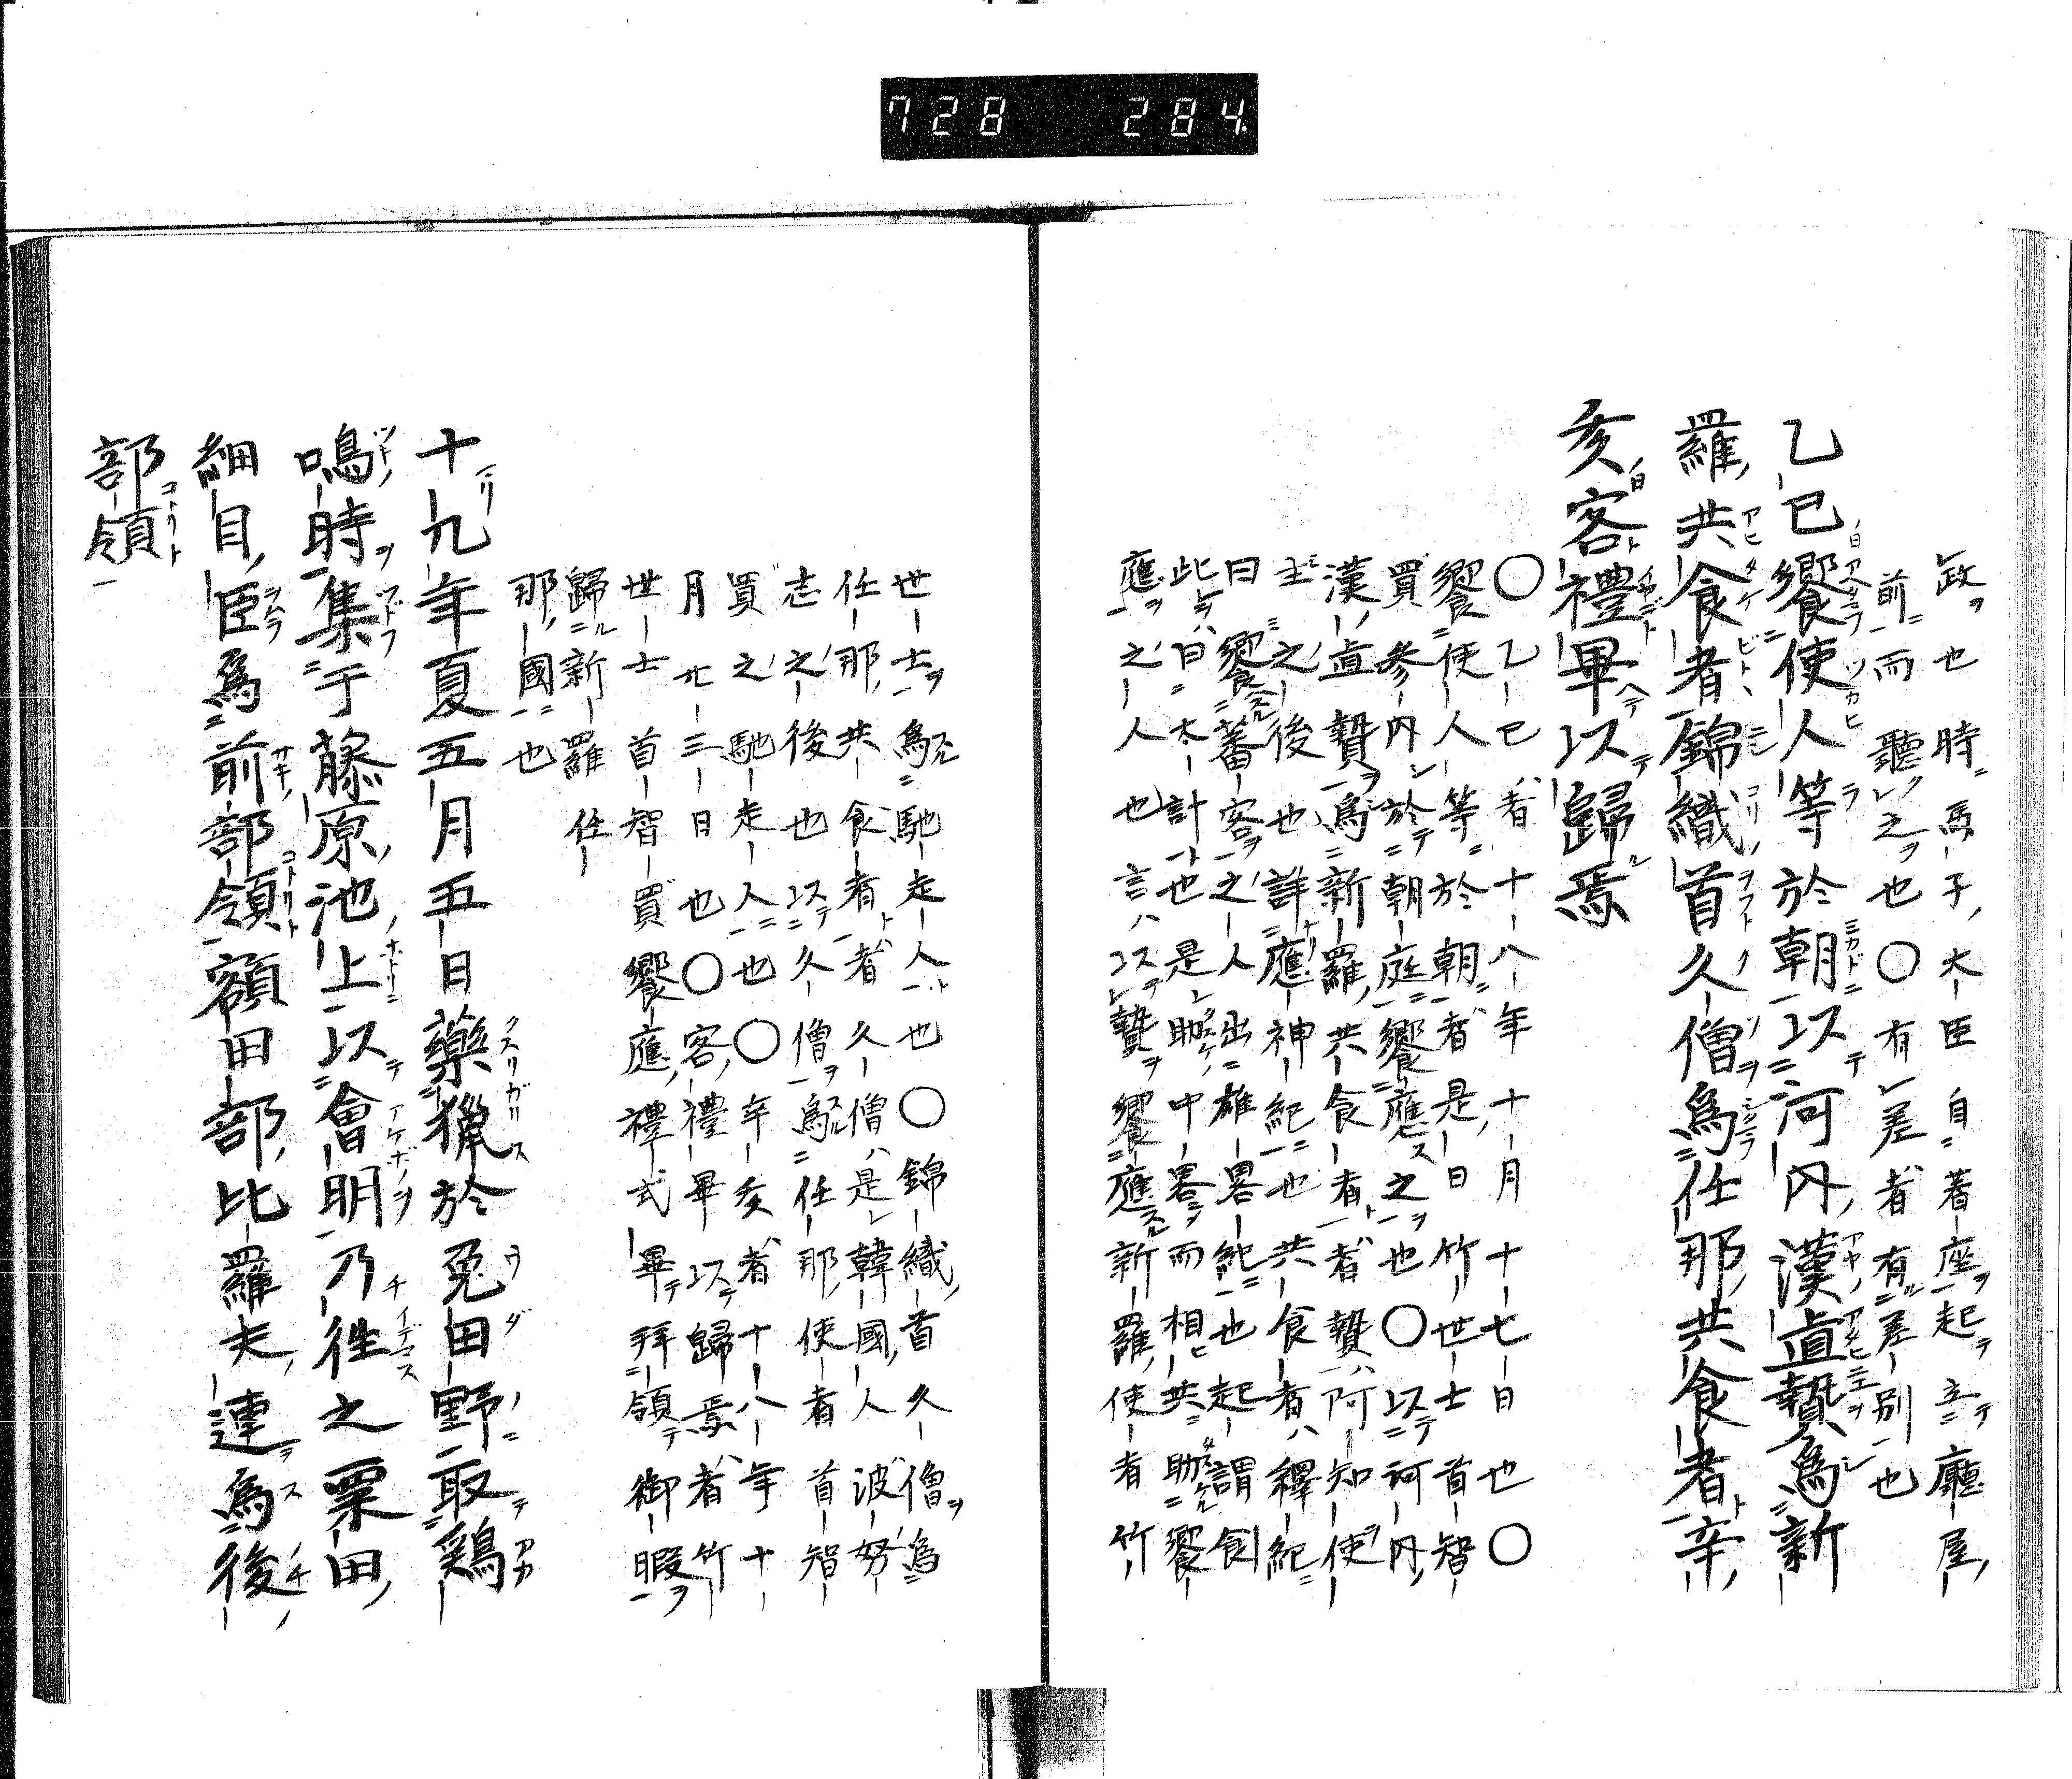 728 284
政ヲ也時ニ馬子大臣自ニ著座ヲ起テ立テ廳屋
前ニ而聽クレ之ヲ也〇有レ差者有ル差別一也
乙巳饗使人等於朝以河内漢直贄爲新
羅共食者錦織首久僧爲任那共食者辛
亥客禮畢以歸焉
〇乙巳者十八年十月十七日也〇
饗使人等於朝者是日竹世士首智
買參内於朝庭饗應之也〇以河内
漢直贄爲新羅共食者贄阿知使
主之後也詳應神紀也共食者釋紀
曰饗蕃客之人出雄畧紀也起謂食
此曰太計也是助中畧而相共助饗
應之人也言以贄饗應新羅使者竹
世士爲馳走人也〇錦織首久僧爲
任那共食者者久僧是韓國人波努
志之後也以久僧爲任那使者首智
買之馳走人也〇辛亥者十八年十
月廿三日也〇客禮畢以歸焉者竹
世士首智買饗應禮式畢拜領御暇
歸新羅任
那國也
十九年夏五月五日藥獵於兎田野取鶏
鳴時集于藤原池上以會明乃往之粟田
細目臣爲前部領額田部比羅夫連爲後
部領